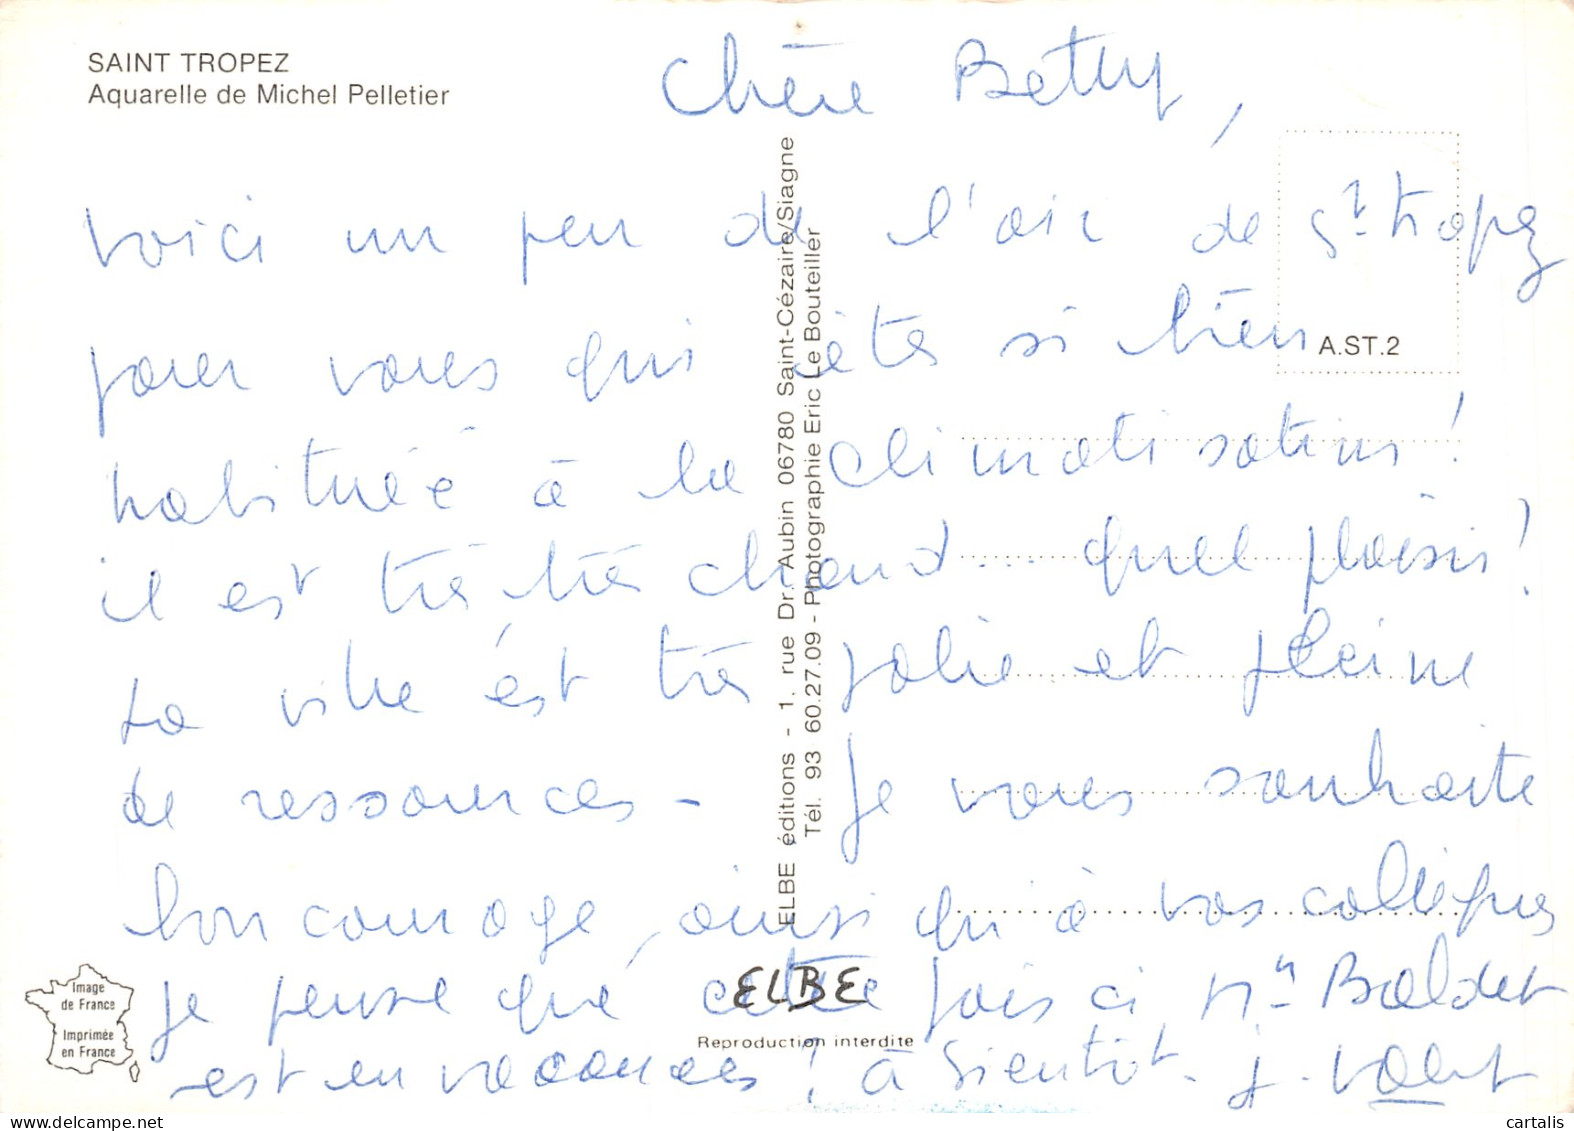 SAINT TROPEZ
Aquarelle de Michel Pelletier
Chère Betty,
Voici un peu de l'air de St Tropez
pour vous qui êtes si bien
habituée à la climatisation!
il est très très chaud... quel plaisir!
La ville est très jolie et pleine
de ressources - Je vous souhaite
bon courage, ainsi qu'à vos collègues
Je pense que cette fois ci Mr Baldet
est en vacances! à bientôt. J.
ELBE éditions - 1, rue Dr. Aubin 06780 Saint-Cézaire/Siagne
Tél. 93 60.27.09 - Photographie Eric Le Bouteiller
A.ST.2
Image
de France
Imprimée
en France
ELBE
Reproduction interdite
cartalis